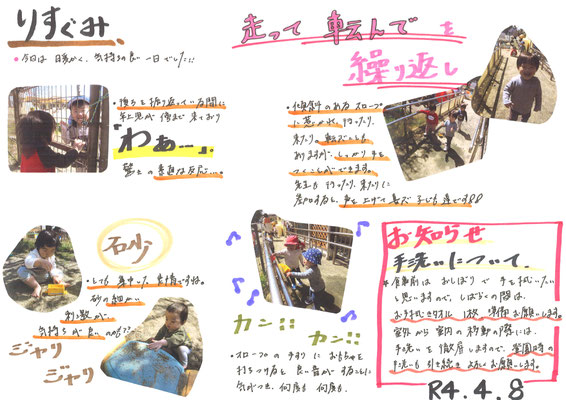 りすぐみ、
・今日は 暖かく、気持ちの良い 一日でした!!
走って 転んで を
繰り返し
・後ろを振り返っている間に
年上児が 傍まで 来ており
『わあーー』。
驚きの 素直な反応…。
・傾斜のある スロープ
に惹かれ 行ったり
来たり。転ぶことも
ありますが、しっかり手を
つくことができます。
先生も 行ったり、来たりに
参加すると、声を上げて 喜ぶ 子ども達です!!
石少
・とても 集中した 表情ですね。
砂の細かい
刺激が
気持ちが良いのね??
ジャリ
ジャリ
カン!! カン!!
・スロープの手すりに おもちゃを
打ちつけると 良い音がすることに
気がつき、何度も 何度も。
お知らせ
手洗いについて、
食事前は おしぼりで 手を拭いたい
と思いますので、しばらくの間は、
お手拭きタオル 1枚 準備お願いします。
室外から 室内の移動の際には、
手洗いを徹底しますので、登園時の
手洗いも引き続き よろしくお願いします。
R4.4.8